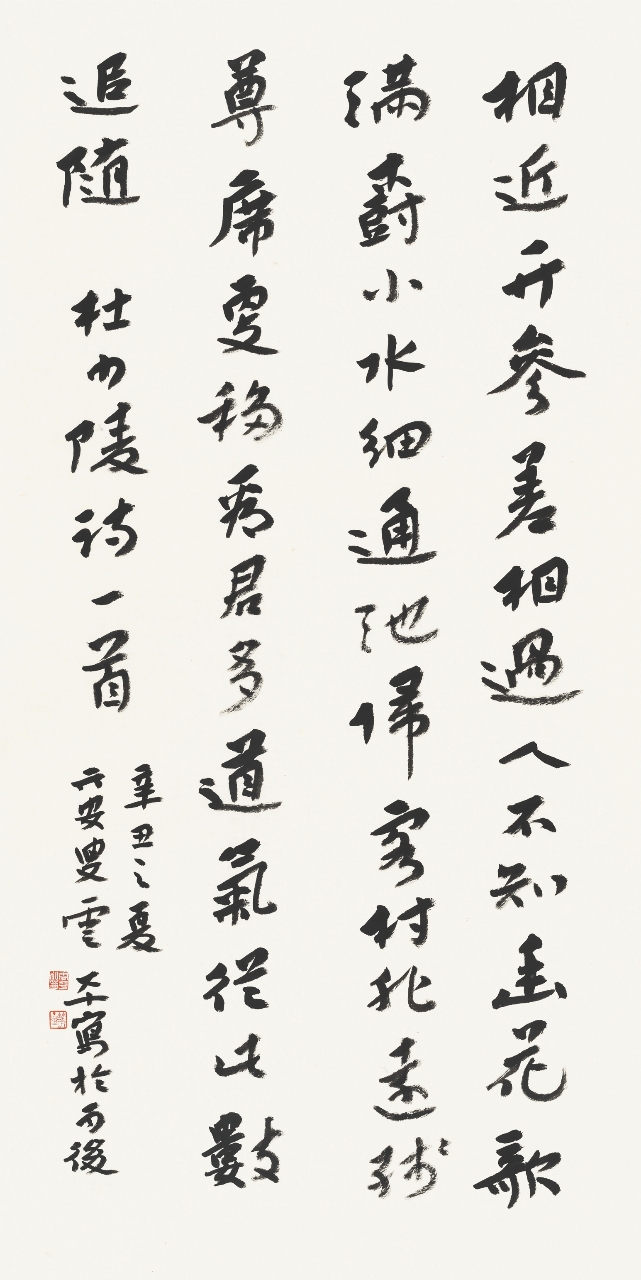 相近竹參差相過人不知幽花欹
滿樹小水細通池歸客村非遠殘
尊席更移看君多道氣從此數
追随 杜少陵詩一首
辛丑之夏
六安叟雲寫於雨後